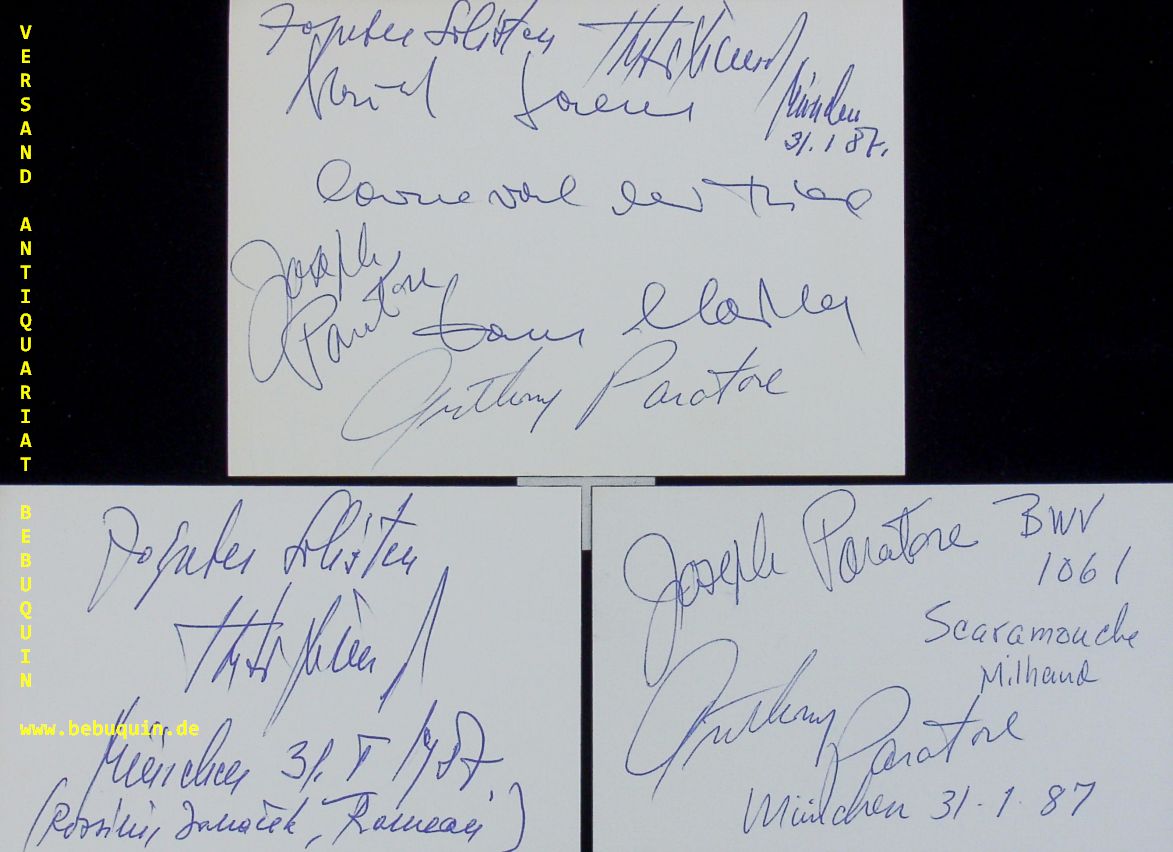 VERSAND ANTIQUARIAT BEBUQUIN
www.bebuquin.de
Zagreber Solisten
München
31. 1 87.
Carneval der Tiere
Joseph
Paratore
Anthony Paratore
Zagreber Solisten
München 31. I 1987
(Rossini, Janaček, Rameau)
Joseph Paratore BWV
1061
Scaramouche
Milhaud
Anthony
Paratore
München 31. 1. 87